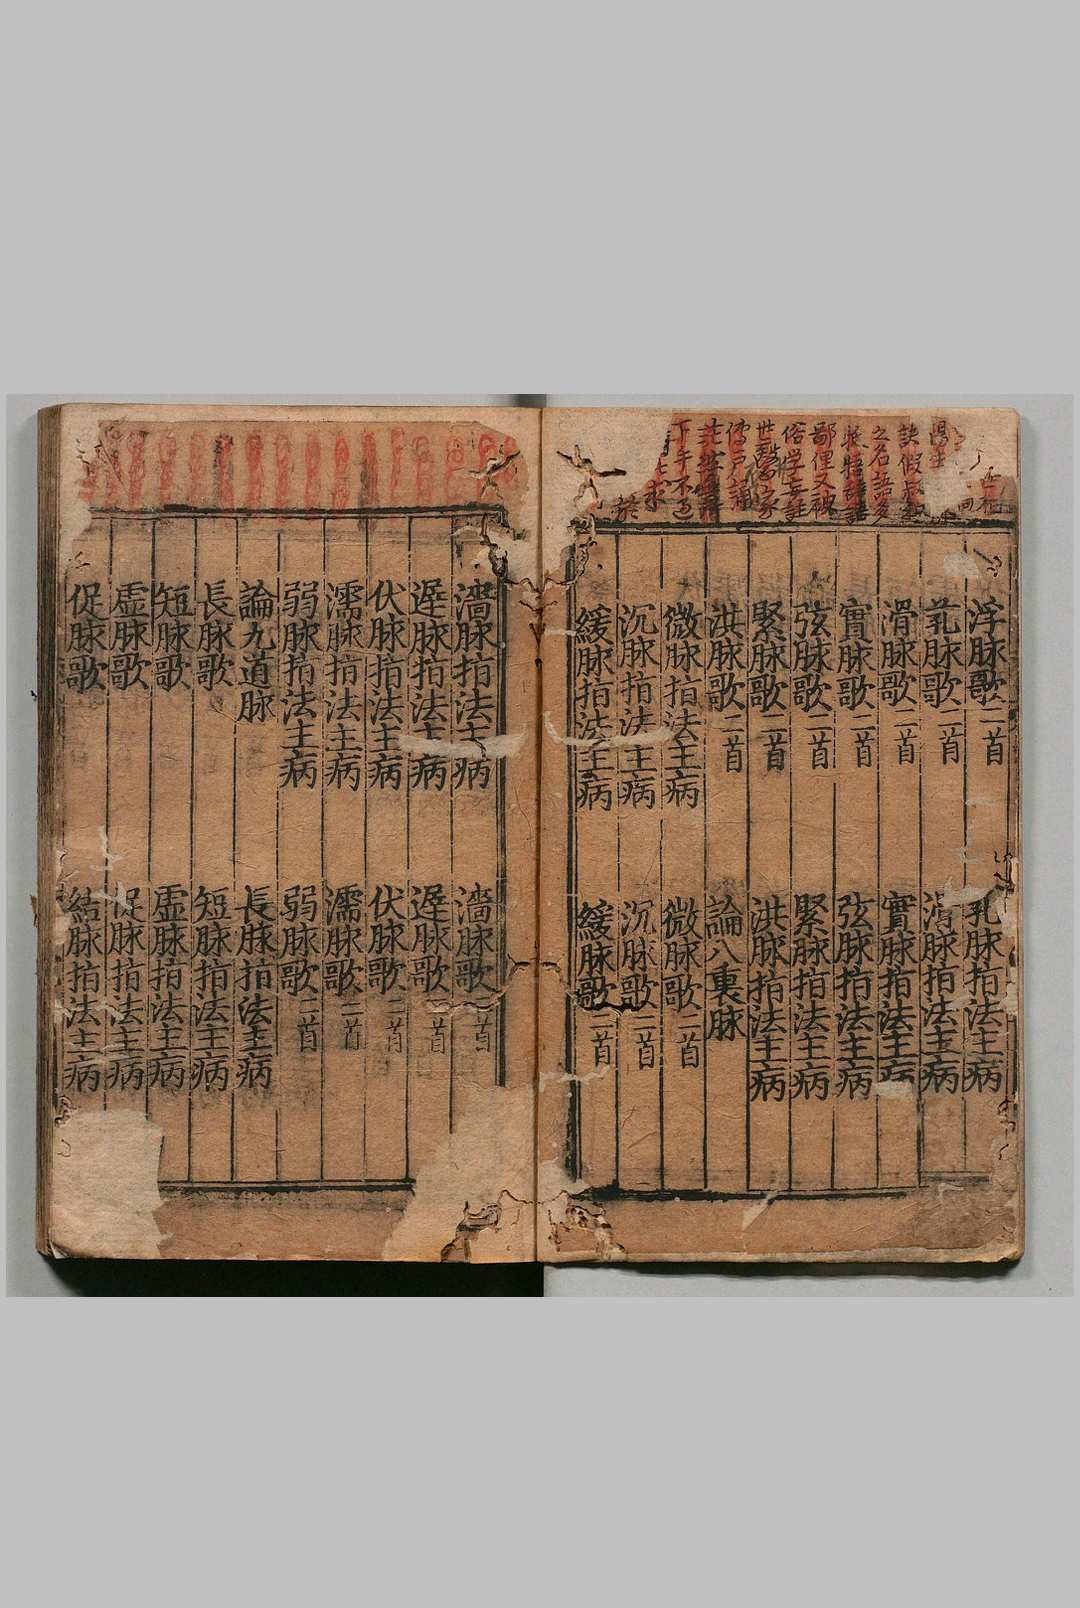 浮脉歌二首
芤脉指法主病
芤脉歌二首
滑脉指法主病
滑脉歌二首
實脉指法主病
實脉歌二首
弦脉指法主病
弦脉歌二首
緊脉指法主病
緊脉歌二首
洪脉指法主病
洪脉歌二首
論八裏脉
微脉指法主病
微脉歌二首
沉脉指法主病
沉脉歌二首
緩脉指法主病
緩脉歌二首
濇脉指法主病
濇脉歌二首
遲脉指法主病
遲脉歌二首
伏脉指法主病
伏脉歌二首
濡脉指法主病
濡脉歌二首
弱脉指法主病
弱脉歌二首
論九道脉
長脉指法主病
長脉歌
短脉指法主病
短脉歌
虛脉指法主病
虛脉歌
促脉指法主病
促脉歌
結脉指法主病
訣假
之名語多
鄙俚又被
俗學妄註
世醫家
儒
下手不
求
於